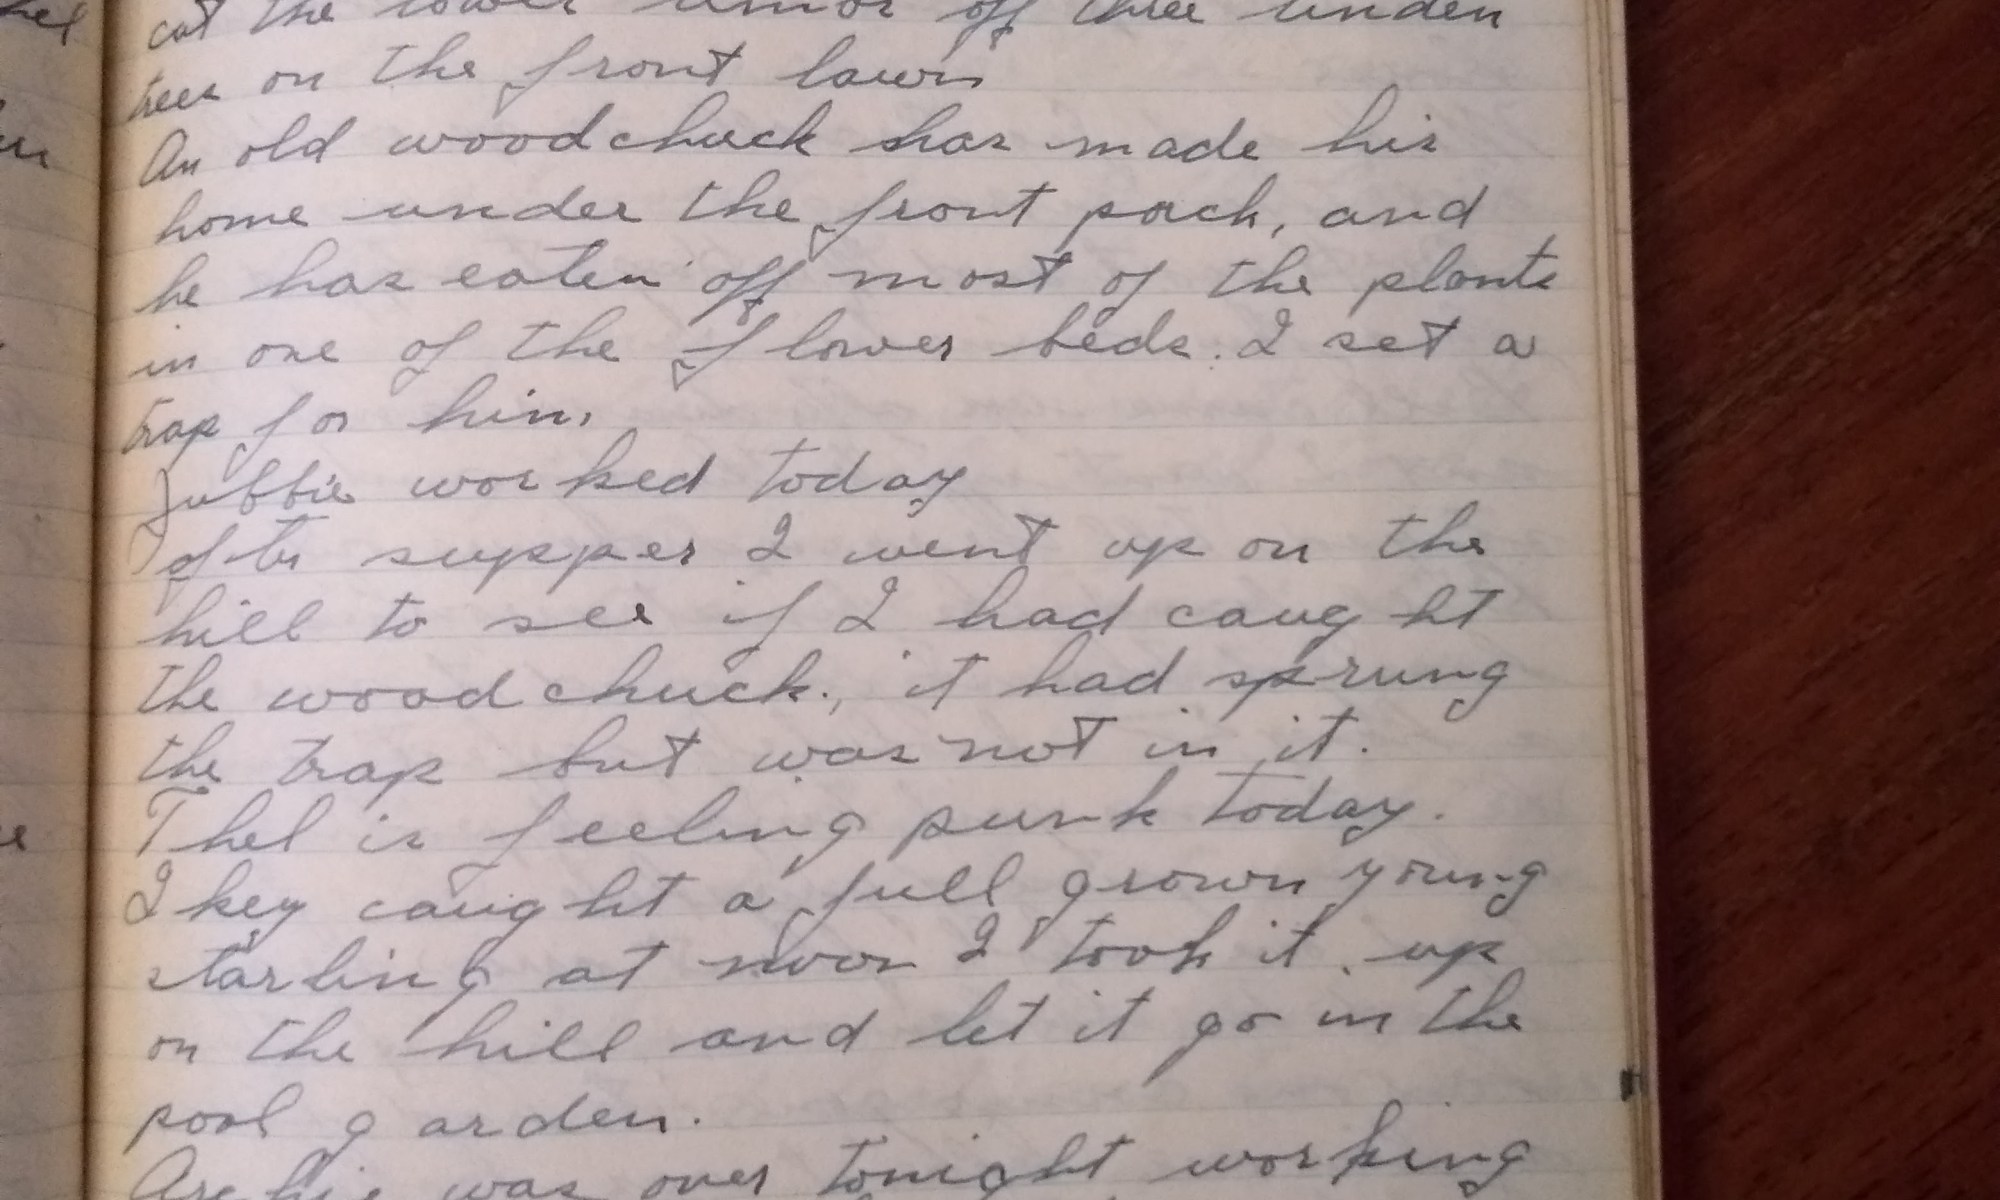 cut the lower limbs off three linden
trees on the front lawn
An old woodchuck has made his
home under the front porch, and
he has eaten off most of the plants
in one of the flower beds. I set a
trap for him.
worked today
after supper I went up on the
hill to see if I had caught
the woodchuck., it had sprung
the trap but was not in it.
Thel is feeling punk today.
Ikey caught a full grown young
starling at noon I took it up
on the hill and let it go in the
pool garden.
Archie was over tonight working